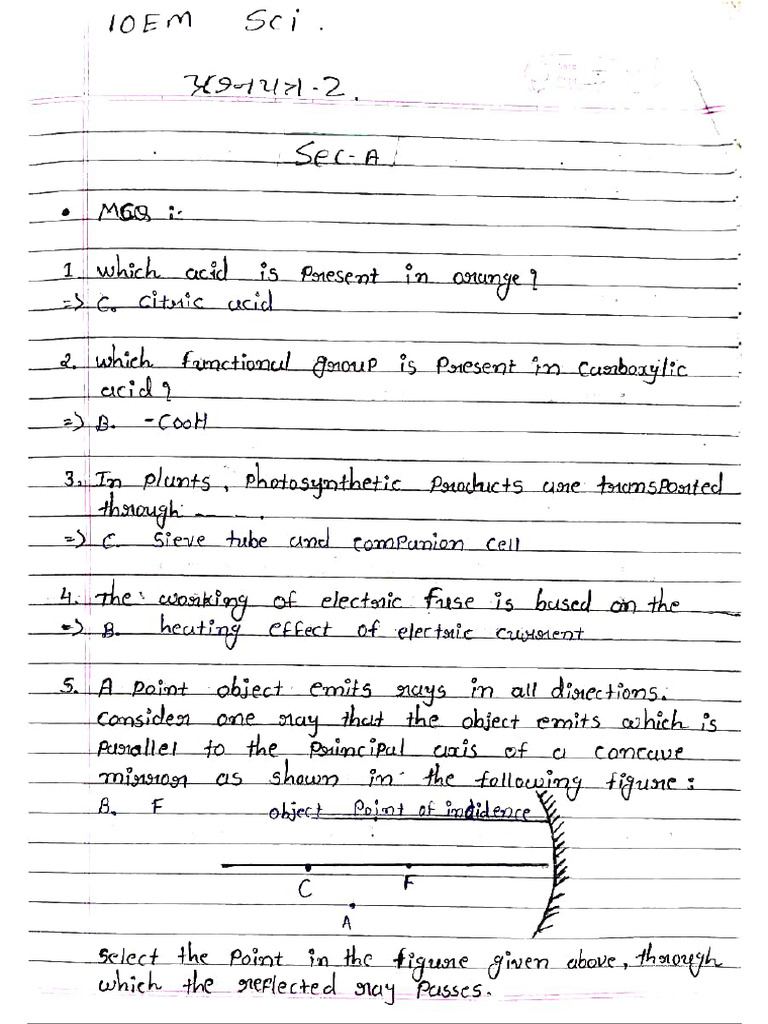 10EM Sci.
પ્રશ્નપત્ર-2.
Sec-A
• MCQ :-
1 which acid is present in orange?
=> C. citric acid
2. which functional group is present in carboxylic
acid?
=> B. -COOH
3. In plants, photosynthetic products are transported
through ——.
=> C. Sieve tube and companion cell
4. The working of electric fuse is based on the —
=> B. heating effect of electric current
5. A point object emits rays in all directions.
consider one ray that the object emits which is
parallel to the principal axis of a concave
mirror as shown in the following figure:
B. F object point of incidence
C F
A
select the point in the figure given above, through
which the reflected ray passes.